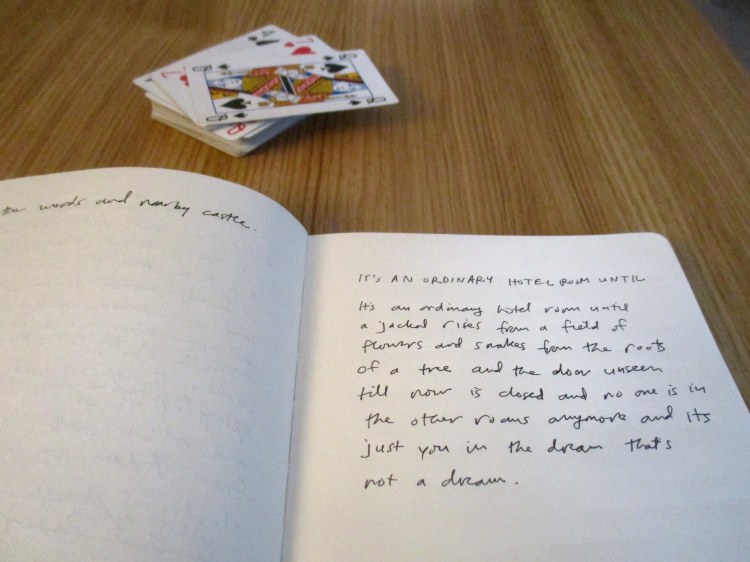 words and nearby castle.
IT'S AN ORDINARY HOTEL ROOM UNTIL
It's an ordinary hotel room until
a jackal rises from a field of
flowers and snakes from the roots
of a tree and the door unseen
till now is closed and no one is in
the other rooms anymore and its
just you in the dream that's
not a dream.